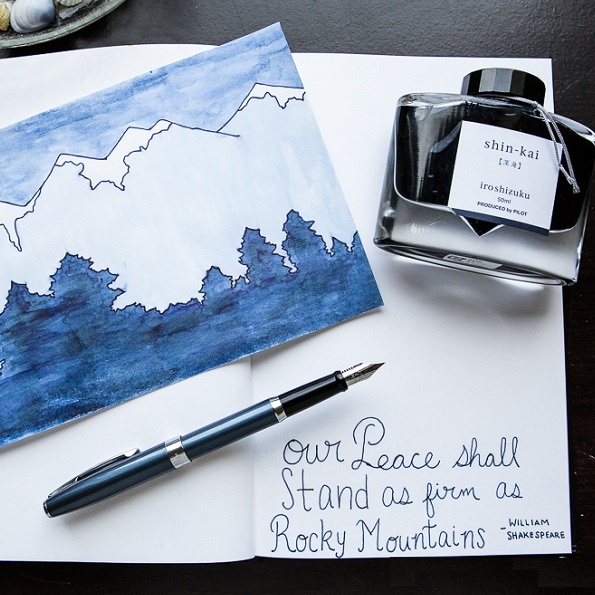 shin-kai
【深海】
iroshizuku
50ml
PRODUCED by PILOT
our Peace shall
Stand as firm as
Rocky Mountains
-WILLIAM
SHAKESPEARE